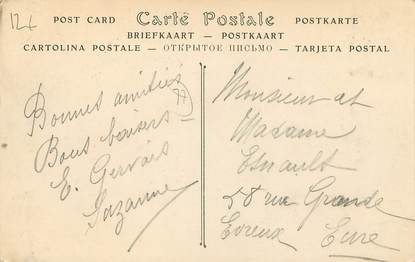 124
POST CARD Carte Postale POSTKARTE
BRIEFKAART — POSTKAART
CARTOLINA POSTALE — ОТКРЫТОЕ ПИСЬМО — TARJETA POSTAL
Bonnes amitiés
Bons baisers
E. Gervais
Suzanne
Monsieur et
Madame
Esnault
28 rue Grande
Evreux
Eure